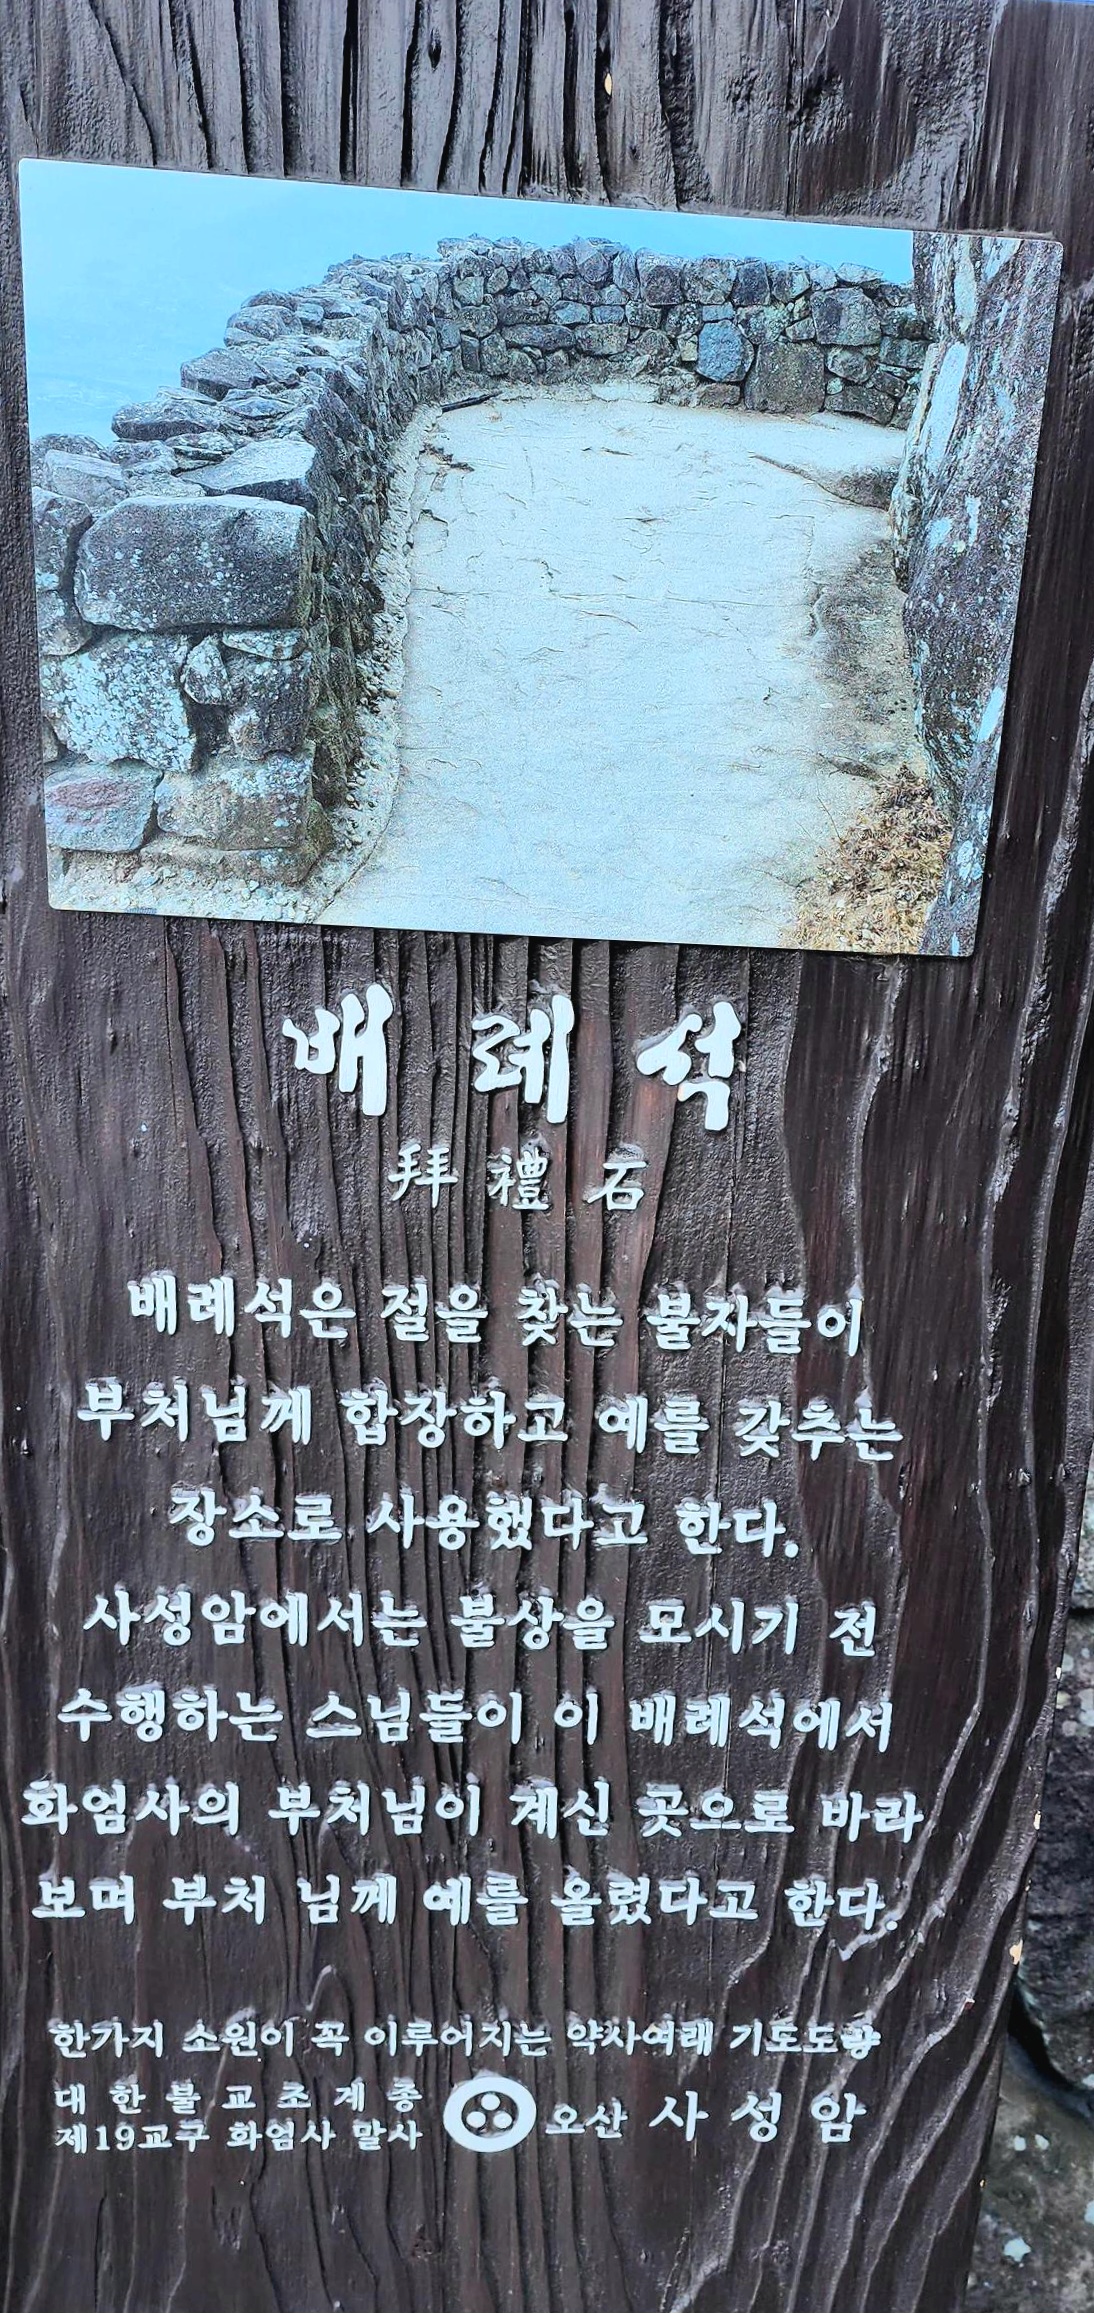 배 례 석
拜 禮 石
배례석은 절을 찾는 불자들이
부처님께 합장하고 예를 갖추는
장소로 사용했다고 한다.
사성암에서는 불상을 모시기 전
수행하는 스님들이 이 배례석에서
화엄사의 부처님이 계신 곳으로 바라
보며 부처 님께 예를 올렸다고 한다.
한가지 소원이 꼭 이루어지는 약사여래 기도도량
대 한 불 교 조 계 종
제19교구 화엄사 말사
오산 사 성 암